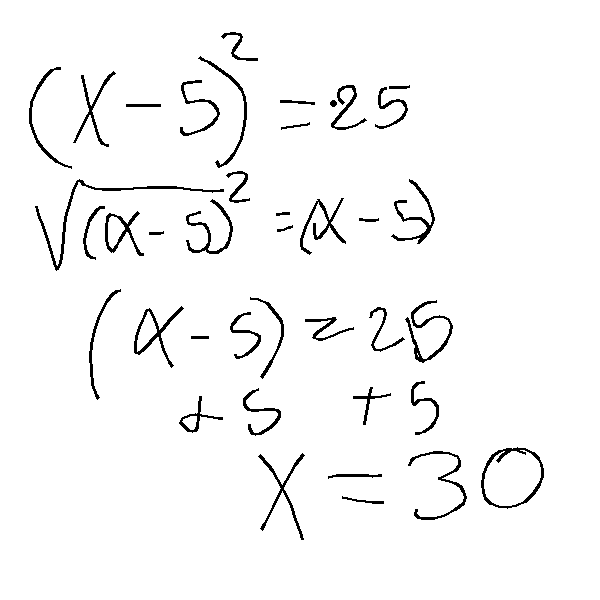 (x - 5)² = 25
√(x - 5)² = (x - 5)
(x - 5) = 25
+ 5 + 5
x = 30